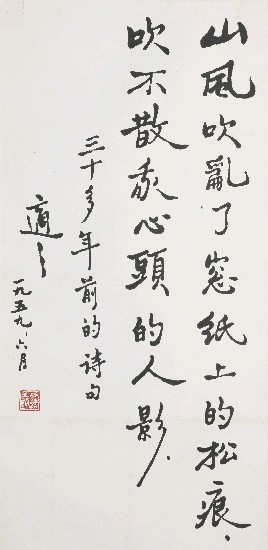 山風吹亂了窓紙上的松痕、
吹不散我心頭的人影.
三十多年前的詩句
適之
一九五九.六月